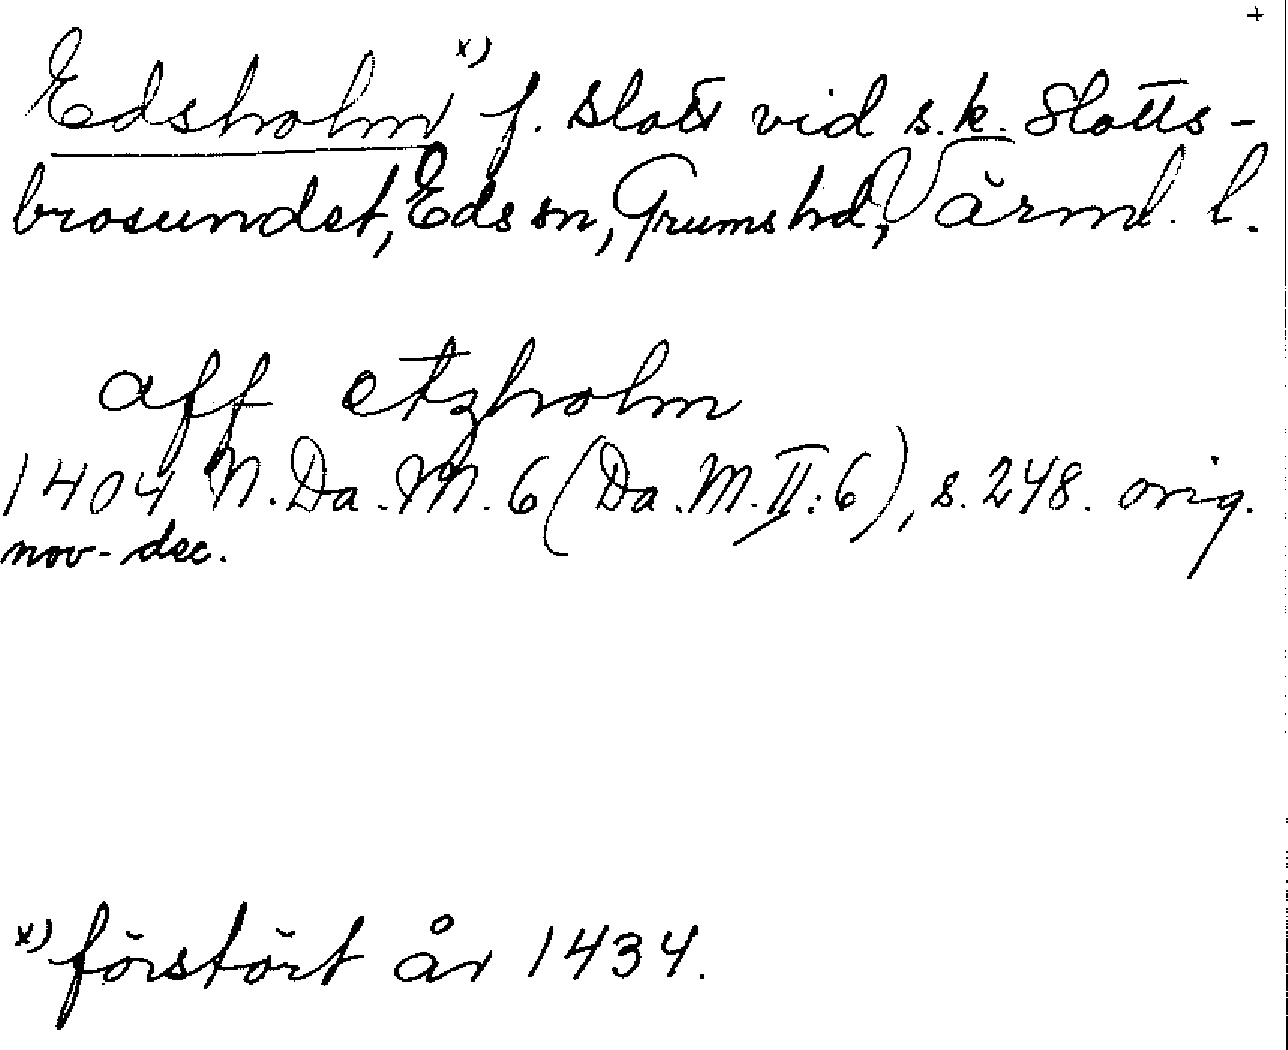 +
Edsholm x) f. slott vid s.k. Slotts-
brosundet, Eds sn, Grums hd, Värml. l.
aff etzholm
1404 N. Da. M. 6 (Da. M. II: 6), s. 248. orig.
nov-dec.
x) förstört år 1434.